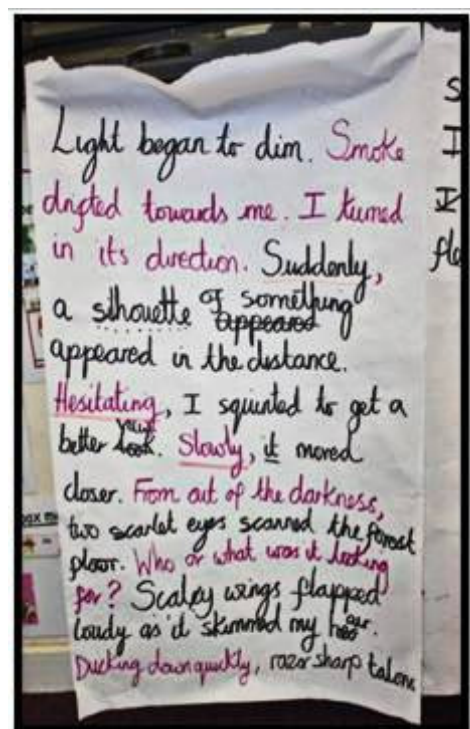 Light began to dim. Smoke
drifted towards me. I turned
in its direction. Suddenly,
a silhouette of something
appeared
appeared in the distance.
Hesitating, I squinted to get a
better look view.  Slowly, it moved
closer. From out of the darkness,
two scarlet eyes scanned the forest
floor. Who or what was it looking
for? Scaley wings flapped
loudly as it skimmed my hair.
Ducking down quickly, razor sharp talons
S
I
I
fle